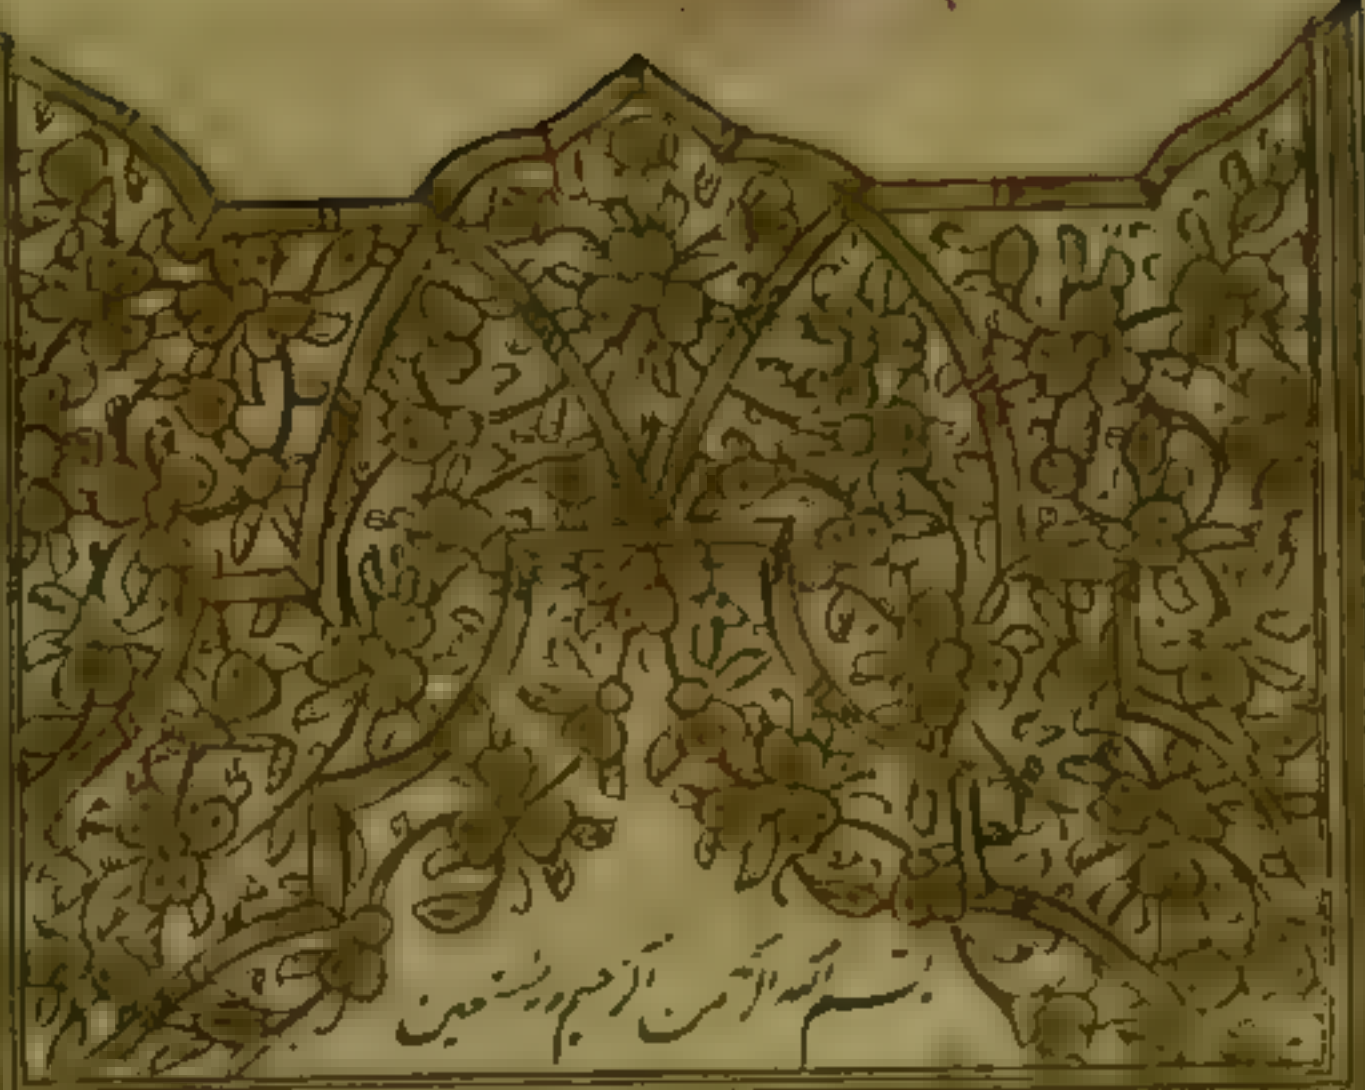 بسم الله الرحمن الرحیم و به نستعین